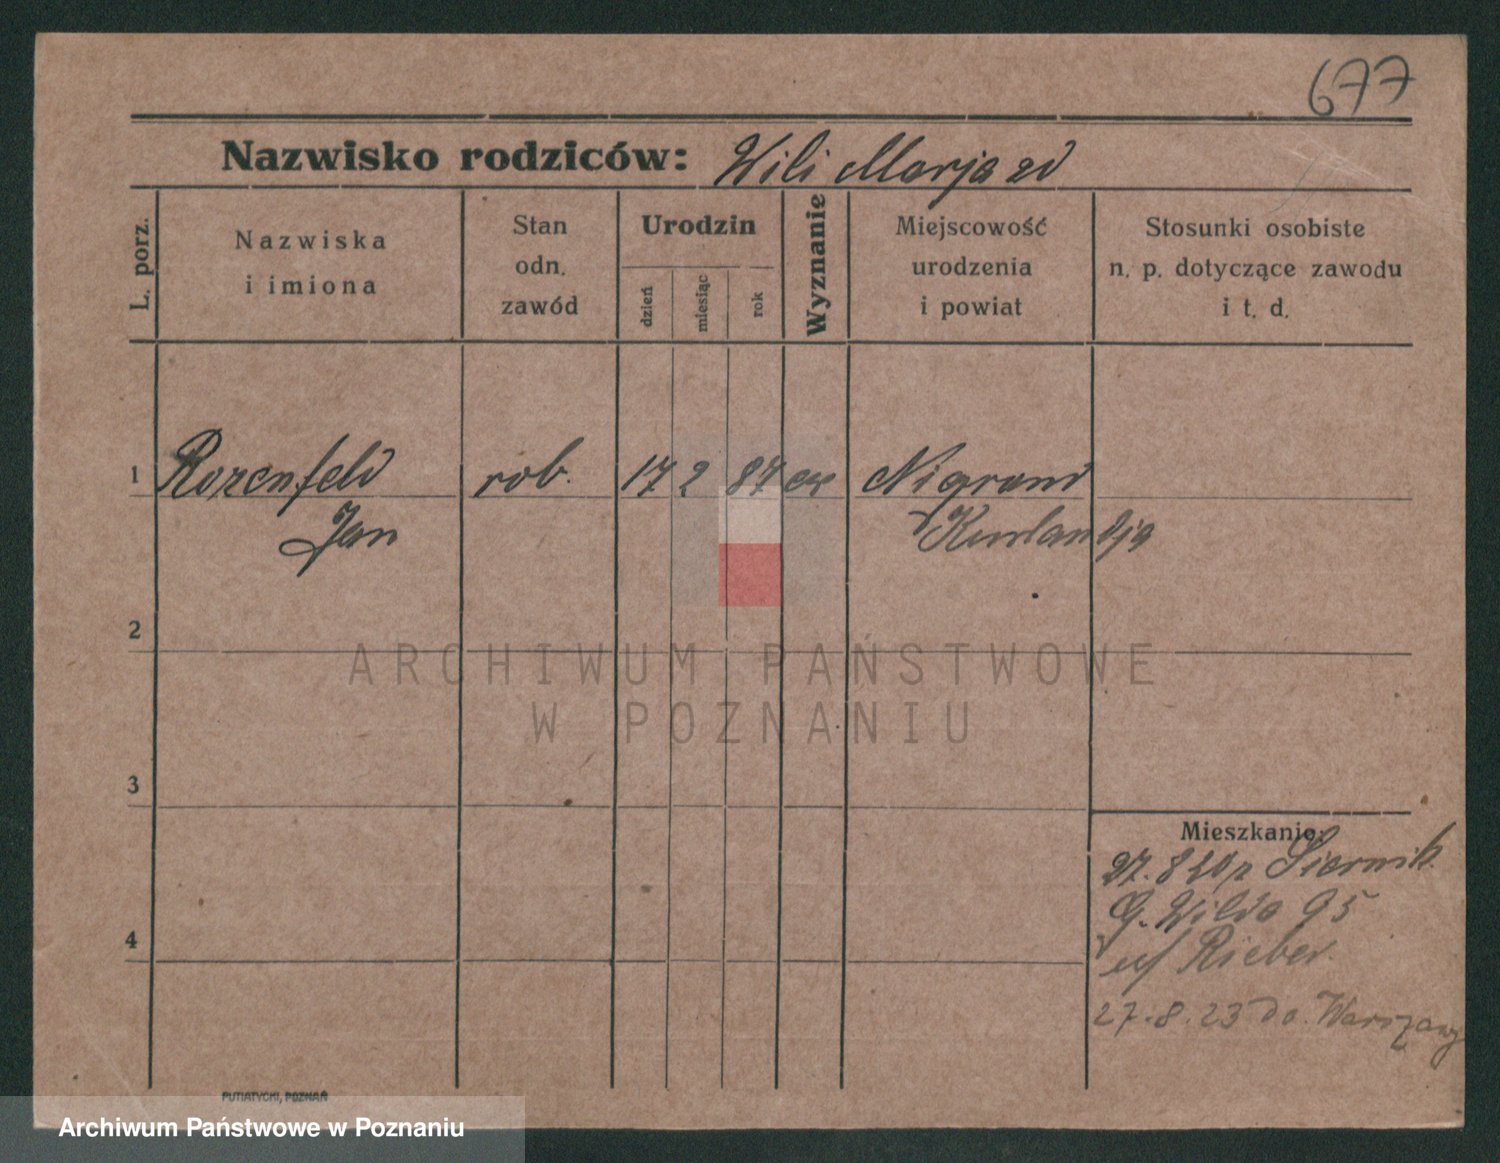 677
Nazwisko rodziców: Wili Marja zd
L. porz.
Nazwiska
i imiona
Stan
odn.
zawód
Urodzin
dzień
miesiąc
rok
Wyznanie
Miejscowość
urodzenia
i powiat
Stosunki osobiste
n. p. dotyczące zawodu
i t. d.
1 Rozenfeld rob. 17 2 87 ew Nigrand
Jan Kurlandja
2
ARCHIWUM PAŃSTWOWE
W POZNANIU
3
Mieszkanie:
27. 8
G. Wilda 95
Rieber
4
27. 8. 23 do. Warszawy
PUTIATYCKI, POZNAŃ
Archiwum Państwowe w Poznaniu